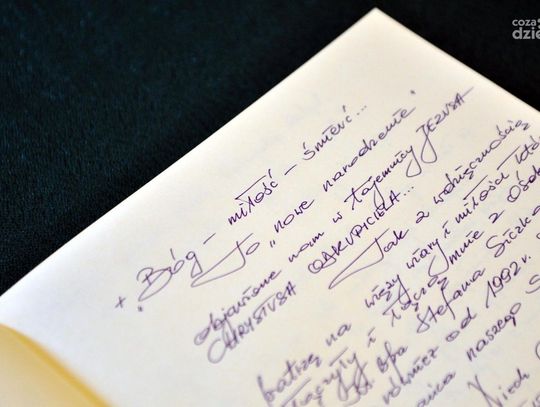 coza
dzie
+ "Bóg - miłość - śmierć...
To „nowe narodzenie"
objawione nam w tajemnicy JEZUSA
CHRYSTUSA ODKUPICIELA...
Jak z wdzięcznością
patrzę na więzy wiary i miłości któr
łączyły i łączą mnie z Osob
Bpa Stefana Siczka
również od 1992 r.
naszego S
Niech